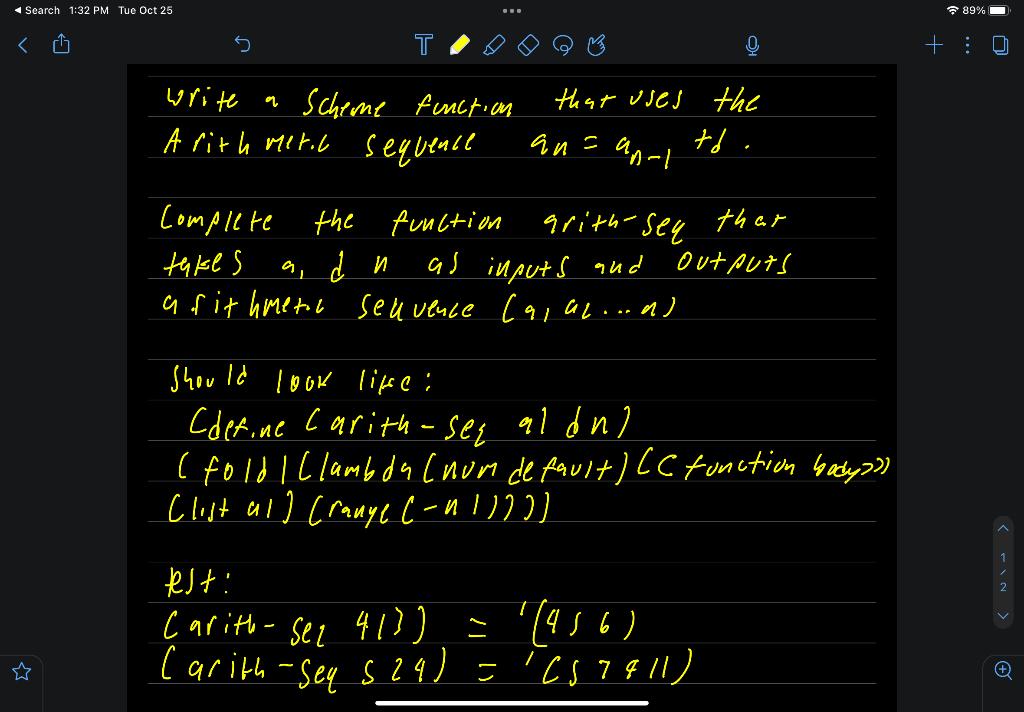 Search 1:32 PM Tue Oct 25
89%
Write a Scheme function that uses the
Arithmetic sequence an = an-1 +d.
Complete the function arith-seq that
takes a, d n as inputs and outputs
arithmetic sequence (a1 a2 ... n)
Should look like:
(define (arith-seq a1 d n)
(foldl (lambda (num default) (< function body>))
(list a1) (range (- n 1))))
test:
(arith-seq 4 1 3) = '(4 5 6)
(arith-seq 5 2 4) = '(5 7 9 11)
1
2